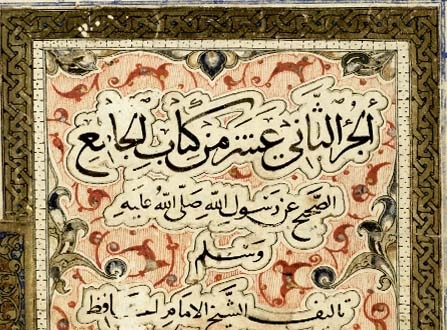 الجزء الثاني عشر من كتاب الجامع
الصحيح عن رسول الله صلى الله عليه
وسلم
تاليف الشيخ الامام الحافظ